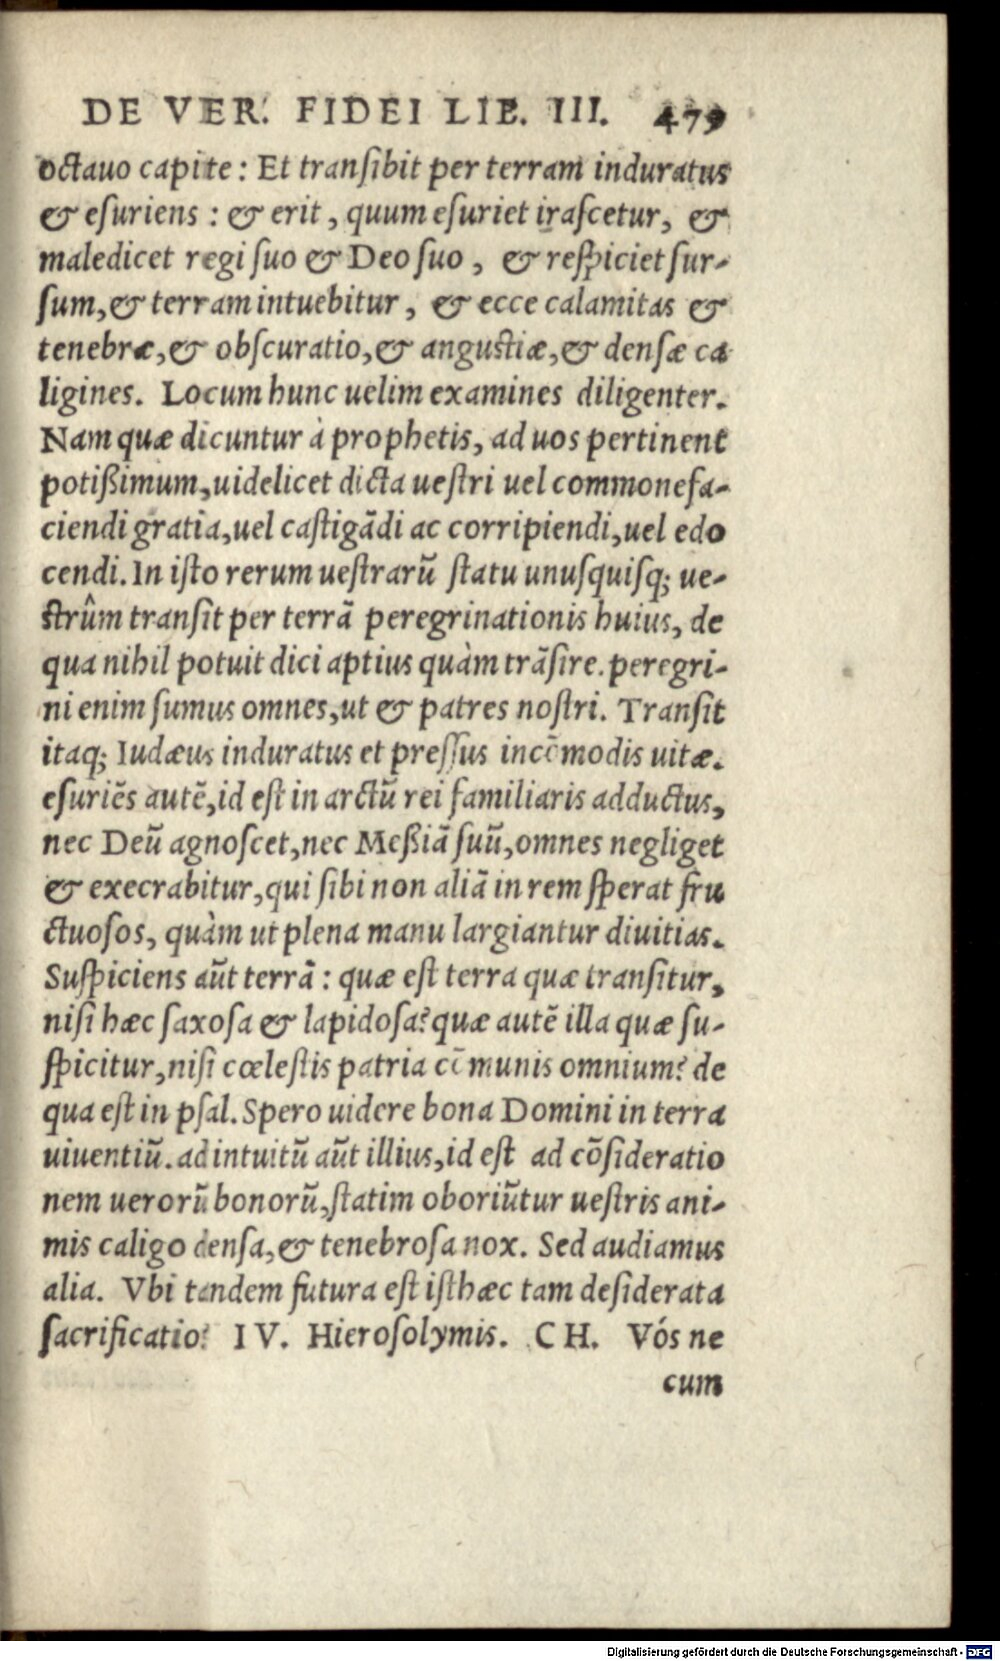 DE VER. FIDEI LIB. III. 479
octauo capite : Et transibit per terram induratus
& esuriens : & erit , quum esuriet irascetur, &
maledicet regi suo & Deo suo , & respiciet sur-
sum, & terram intuebitur , & ecce calamitas &
tenebræ, & obscuratio, & angustiæ, & densæ ca
ligines. Locum hunc uelim examines diligenter.
Nam quæ dicuntur à prophetis, ad uos pertinent
potißimum, uidelicet dicta uestri uel commonefa-
ciendi gratia, uel castigãdi ac corripiendi, uel edo
cendi. In isto rerum uestrarũ statu unusquisq; ue-
strûm transit per terrã peregrinationis huius, de
qua nihil potuit dici aptius quàm trãsire. peregri-
ni enim sumus omnes, ut & patres nostri. Transit
itaq; Iudæus induratus et pressus incõmodis uitæ.
esuriẽs autẽ, id est in arctũ rei familiaris adductus,
nec Deũ agnoscet, nec Meßiã suũ, omnes negliget
& execrabitur, qui sibi non aliã in rem sperat fru
ctuosos, quàm ut plena manu largiantur diuitias.
Suspiciens aũt terrã : quæ est terra quæ transitur,
nisi hæc saxosa & lapidosa? quæ autẽ illa quæ su-
spicitur, nisi cœlestis patria cõmunis omnium? de
qua est in psal. Spero uidere bona Domini in terra
uiuentiũ. ad intuitũ aũt illius, id est ad cõsideratio
nem uerorũ bonorũ, statim oboriũtur uestris ani-
mis caligo densa, & tenebrosa nox. Sed audiamus
alia. Vbi tandem futura est isthæc tam desiderata
sacrificatio? IV. Hierosolymis. CH. Vós ne
cum
Digitalisierung gefördert durch die Deutsche Forschungsgemeinschaft - DFG